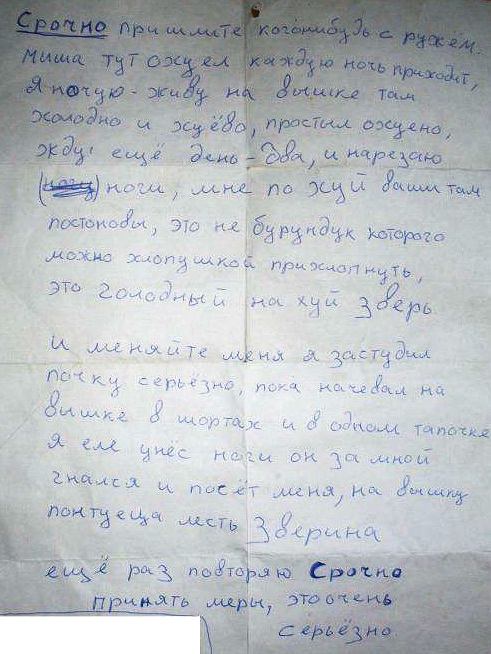 Срочно пришлите когонибудь с ружем.
Миша тут охуел каждую ночь приходит,
я ночую-живу на вышке там
холодно и хуёво, простыл охуено,
жду ещё день-два, и нарезаю
(ночу) ноги, мне по хуй ваши там
постоновы, это не бурундук которого
можно хлопушкой прихлопнуть,
это голодный на хуй зверь
и меняйте меня я застудил
почку серьёзно, пока начевал на
вышке в шортах и в одном тапочке
я еле унёс ноги он за мной
гнался и посёт меня, на вышку
понтуеца лесть Зверина
ещё раз повторяю Срочно
принять меры, это очень
серьёзно